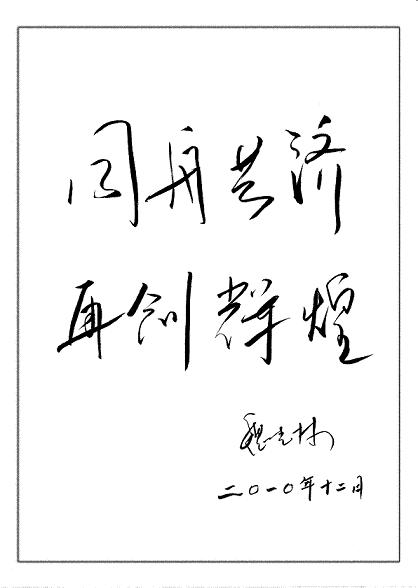 同舟共济
再创辉煌
二〇一〇年十二月